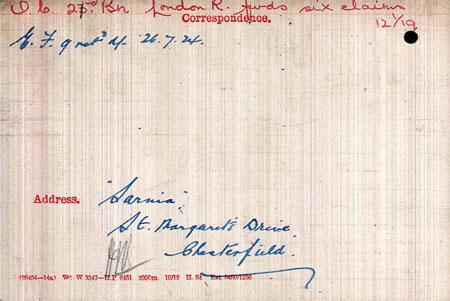 O i/c. 25rd Bn London R. fwds six claims
Correspondence. 12/19
E. F. 9 ret^d d/- 26.7.24.
Address. "Sarnia",
St. Margaret's Drive,
Chesterfield.
(25454—14a) Wt W 3247—H P 6451 2000m. 10/19 H. St